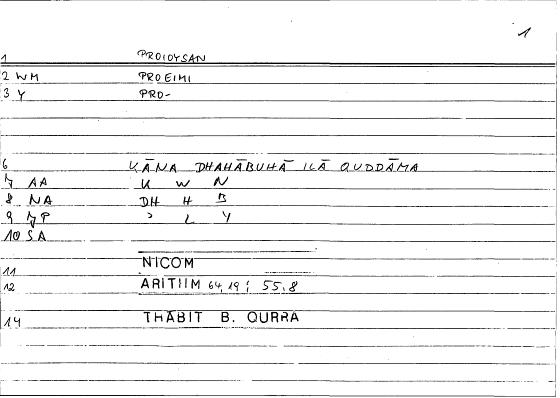 1
1 PROIOYSAN
2 WM PROEIMI
3 Y PRO-
6 KĀNA DHAHĀBUHĀ ILĀ QUDDĀMA
7 AA K W N
8 NA DH H B
9 JP ʾ L Y
10 SA
11 NICOM
12 ARITIIM 64,19; 55,8
14 THĀBIT B. QURRA